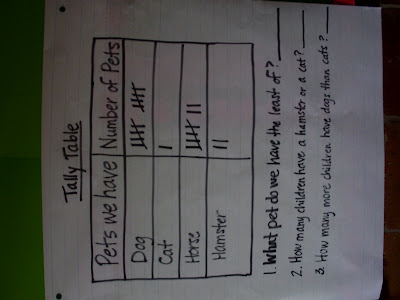 Tally Table
Pets we have Number of Pets
Dog 卌 卌
Cat |
Horse 卌 ||
Hamster ||
1. What pet do we have the least of? ____
2. How many children have a hamster or a cat? ____
3. How many more children have dogs than cats? ____